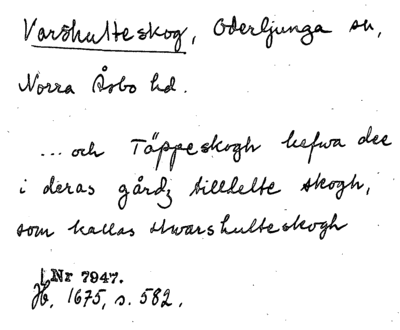 Varshulteskog, Oderljunga sn,
Norra Åsbo hd.
... och Täppeskogh hefwa dee
i deras gårdz tilldelte skogh,
som kallas Hwarshulteskogh
Nr 7947.
Jb. 1675, s. 582.